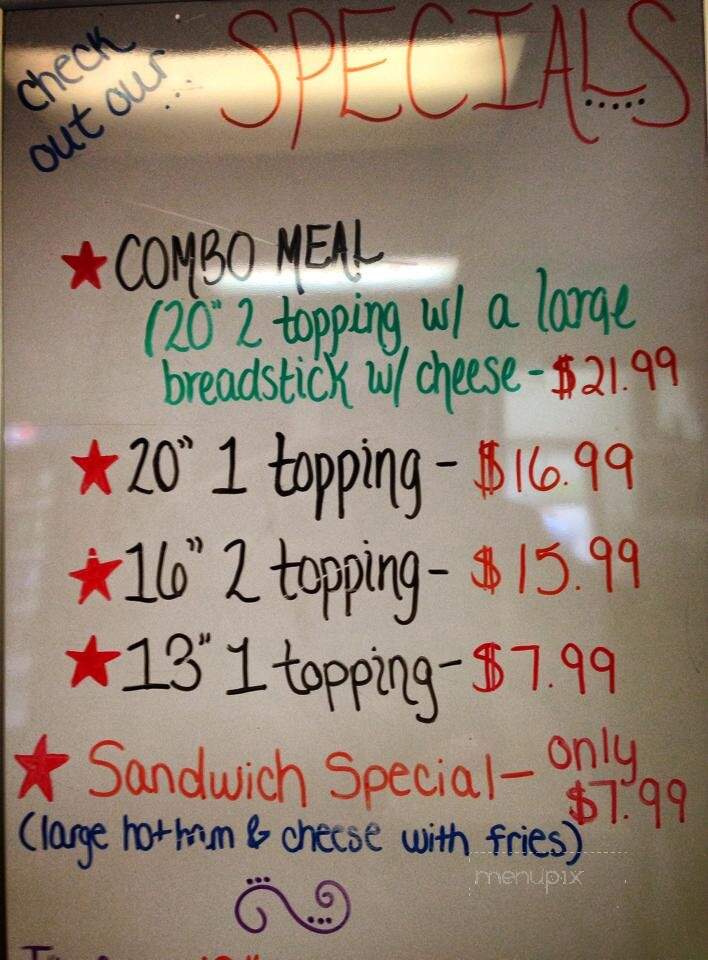 check
out our...
SPECIALS
COMBO MEAL
(20" 2 topping w/ a large
breadstick w/ cheese - $21.99
20" 1 topping - $16.99
16" 2 topping - $15.99
13" 1 topping - $7.99
Sandwich Special - only
$7.99
(large hot ham & cheese with fries)
menupix